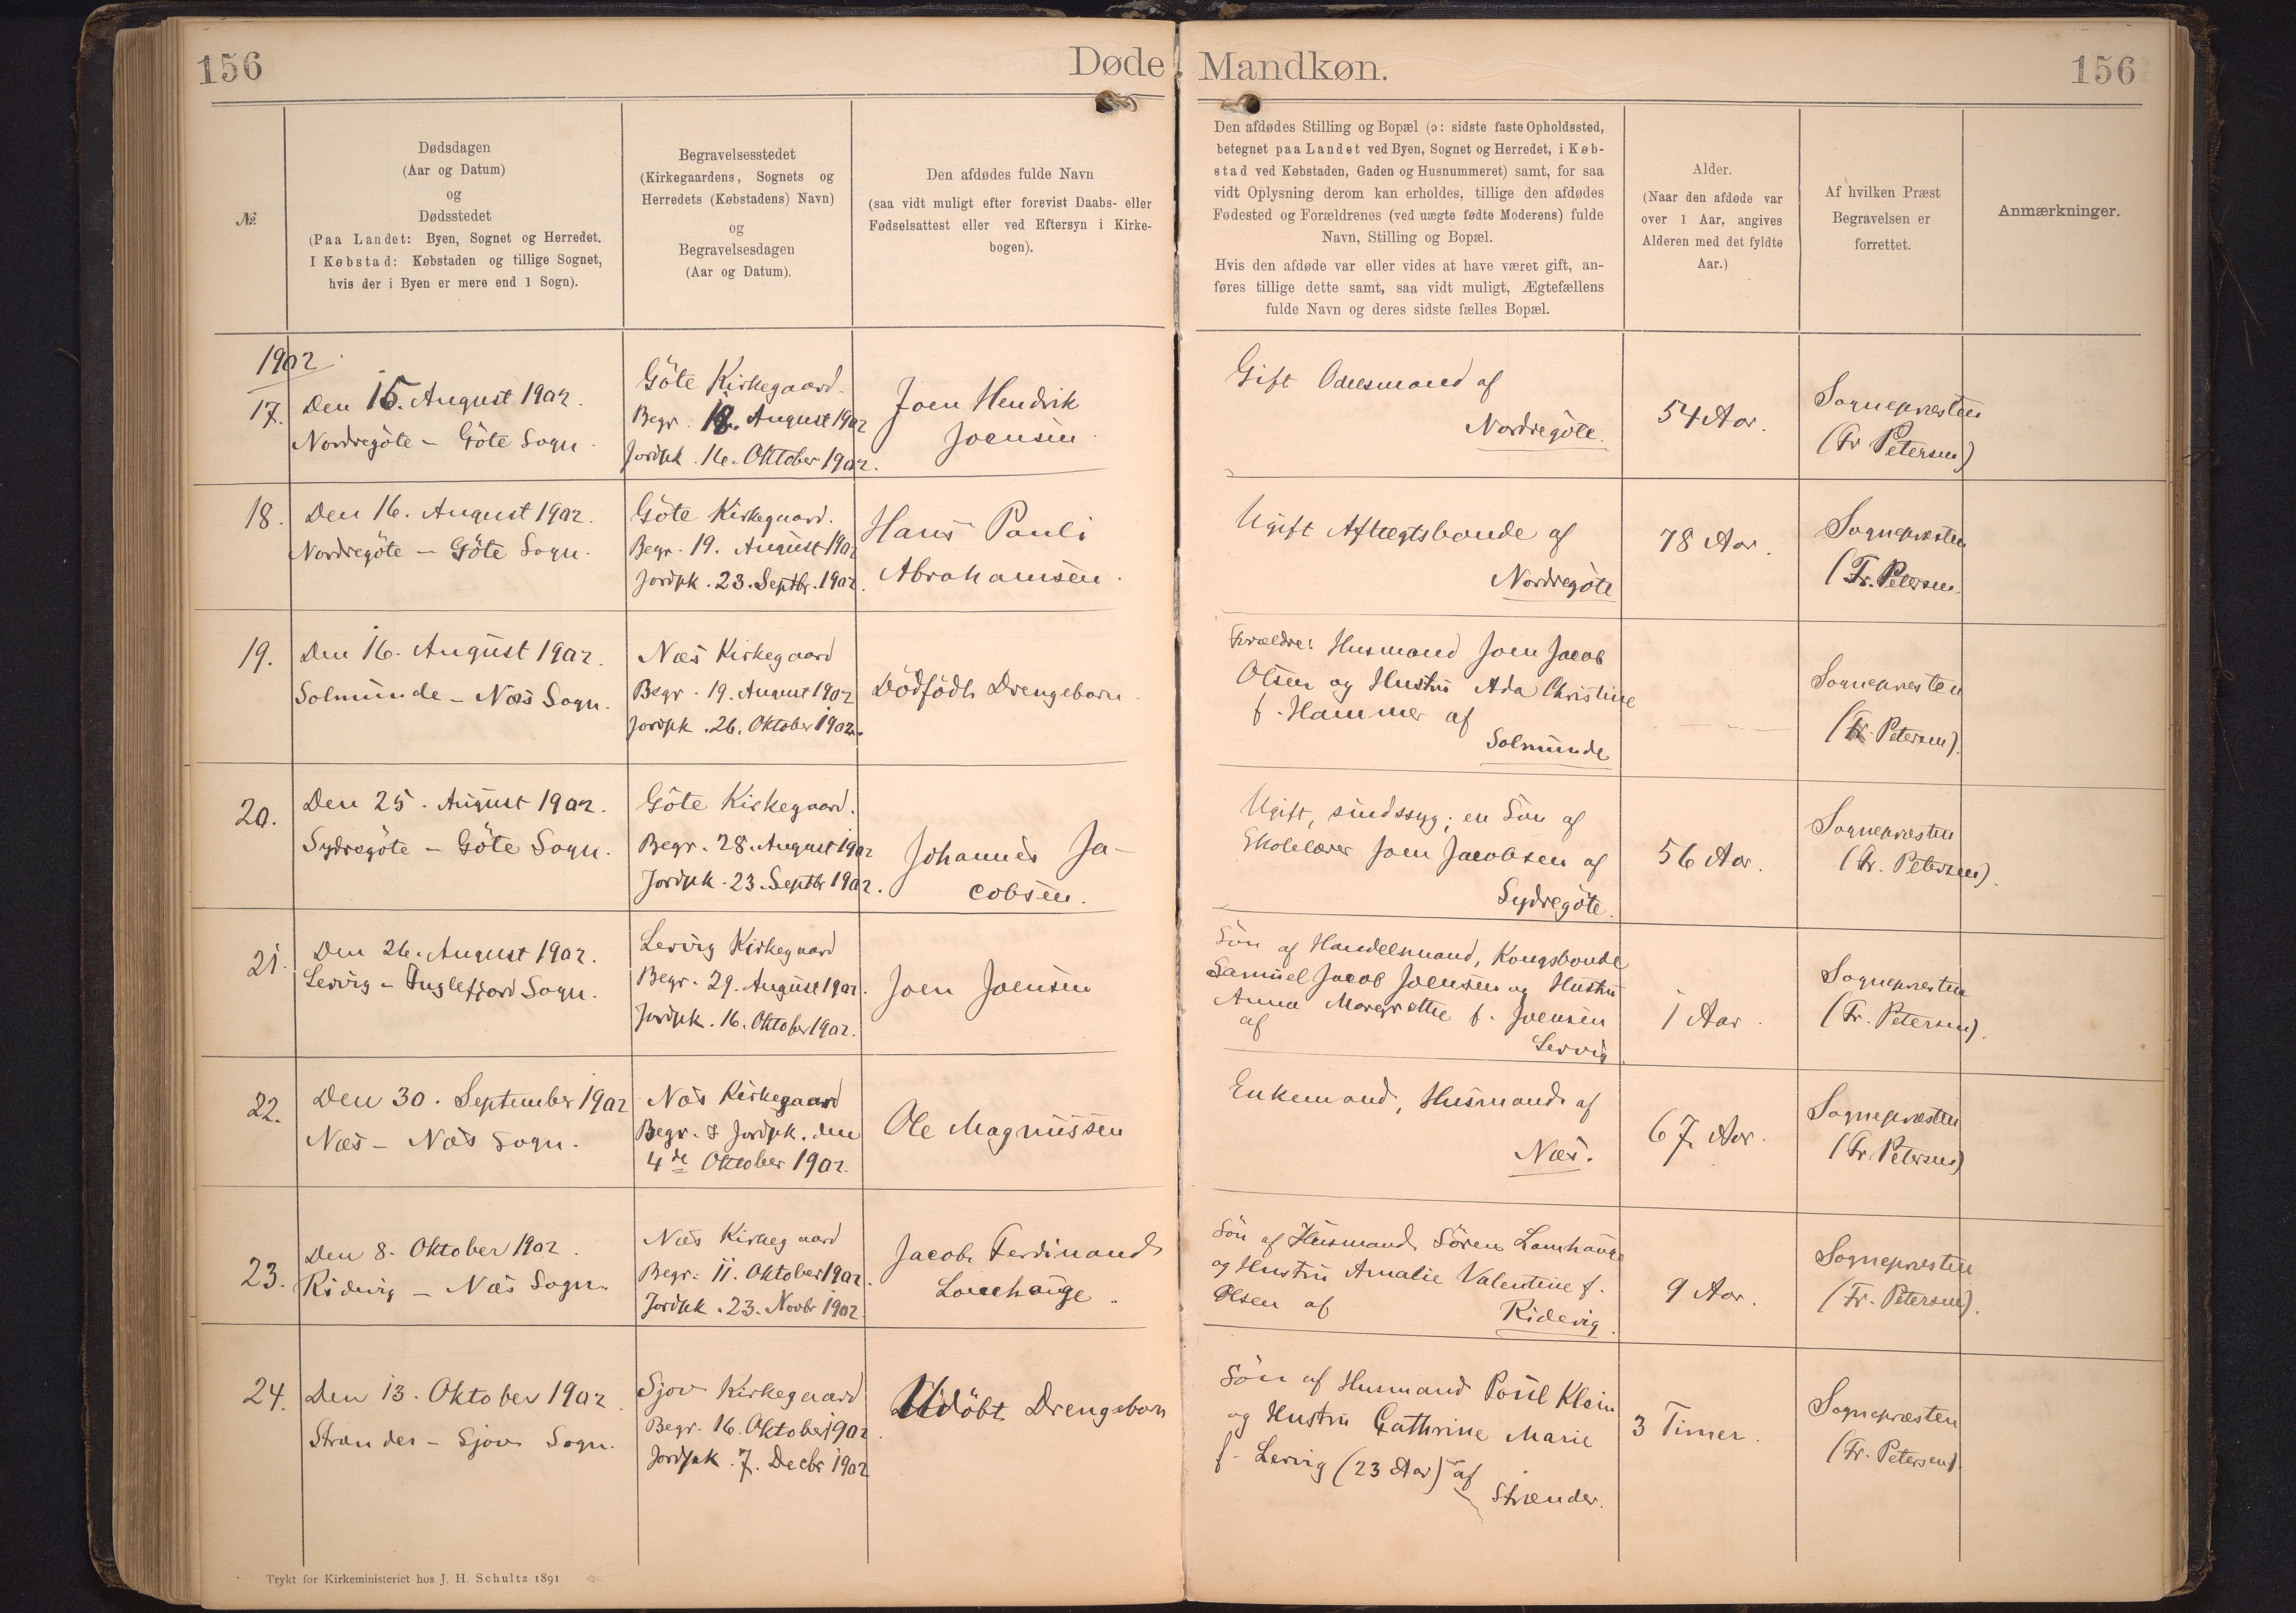 156
Døde
Mandkøn.
156
№
Dødsdagen
(Aar og Datum)
og
Dødsstedet
(Paa Landet: Byen, Sognet og Herredet.
I Købstad: Købstaden og tillige Sognet,
hvis der i Byen er mere end 1 Sogn).
Begravelsesstedet
(Kirkegaardens, Sognets og
Herredets (Købstadens) Navn)
og
Begravelsesdagen
(Aar og Datum).
Den afdødes fulde Navn
(saa vidt muligt efter forevist Daabs- eller
Fødselsattest eller ved Eftersyn i Kirke-
bogen).
Den afdødes Stilling og Bopæl (ɔ: sidste faste Opholdssted,
betegnet paa Landet ved Byen, Sognet og Herredet, i Køb-
stad ved Købstaden, Gaden og Husnummeret) samt, for saa
vidt Oplysning derom kan erholdes, tillige den afdødes
Fødested og Forældrenes (ved uægte fødte Moderens) fulde
Navn, Stilling og Bopæl.
Hvis den afdøde var eller vides at have været gift, an-
føres tillige dette samt, saa vidt muligt, Ægtefællens
fulde Navn og deres sidste fælles Bopæl.
Alder.
(Naar den afdøde var
over 1 Aar, angives
Alderen med det fyldte
Aar.)
Af hvilken Præst
Begravelsen er
forrettet.
Anmærkninger.
1902
17.
Den 15. August 1902.
Nordregöte – Göte Sogn.
Göte Kirkegaard.
Begr. 18. August 1902
Jordpk. 16. Oktober 1902.
Joen Hendrik
Joensen
Gift Odelsmand af
Nordregöte.
54 Aar.
Sognepræsten
(Fr Petersen)
18.
Den 16. August 1902.
Nordregöte – Göte Sogn.
Göte Kirkegaard.
Begr. 19. August 1902
Jordpk. 23. Septbr. 1902.
Hans Pauli
Abrahamsen.
Ugift Aftægtsbonde af
Nordregöte
78 Aar.
Sognepræsten
(Fr. Petersen.
19.
Den 16. August 1902.
Solmunde – Næs Sogn.
Næs Kirkegaard
Begr. 19. August 1902
Jordpk. 26. Oktober 1902.
Dödfödt Drengebarn.
Forældre: Husmand Joen Jacob
Olsen og Hustru Ada Christine
f. Hammer af
Solmunde
Sognepræsten
(Fr. Petersen).
20.
Den 25. August 1902.
Sydregöte – Göte Sogn.
Göte Kirkegaard.
Begr. 28. August 1902
Jordpk. 23. Septbr 1902.
Johannes Ja-
cobsen.
Ugift, sindssyg; en Sön af
Skolelærer Joen Jacobsen af
Sydregöte.
56 Aar.
Sognepræsten
(Fr. Petersen).
21.
Den 26. August 1902.
Lervig – Fuglefjord Sogn.
Lervig Kirkegaard
Begr. 29. August 1902.
Jordpk. 16. Oktober 1902.
Joen Joensen
Sön af Handelsmand, Kongsbonde
Samuel Jacob Joensen og Hustru
Anna Margrethe f. Joensen
af
Lervig
1 Aar.
Sognepræsten
(Fr. Petersen).
22.
Den 30. September 1902
Næs – Næs Sogn.
Næs Kirkegaard
Begr. & Jordpk. den
4de Oktober 1902.
Ole Magnussen
Enkemand, Husmand af
Næs.
67 Aar.
Sognepræsten
(Fr Petersen)
23.
Den 8. Oktober 1902.
Ridevig – Næs Sogn.
Næs Kirkegaard
Begr. 11. Oktober 1902.
Jordpk. 23. Novbr 1902.
Jacob Ferdinand
Lamhauge.
Sön af Husmand Sören Lamhauge
og Hustru Amalie Valentine f.
Olsen af
Ridevig.
9 Aar.
Sognepræsten
(Fr. Petersen).
24.
Den 13. Oktober 1902.
Strænder – Sjov Sogn.
Sjov Kirkegaard
Begr. 16. Oktober 1902.
Jordpk. 7. Decbr 1902
Udöbt Drengebarn
Sön af Husmand Poul Klein
og Hustru Cathrine Marie
f. Lervig (23 Aar) af
Strænder.
3 Timer.
Sognepræsten
(Fr. Petersen).
Trykt for Kirkeministeriet hos J. H. Schultz 1891